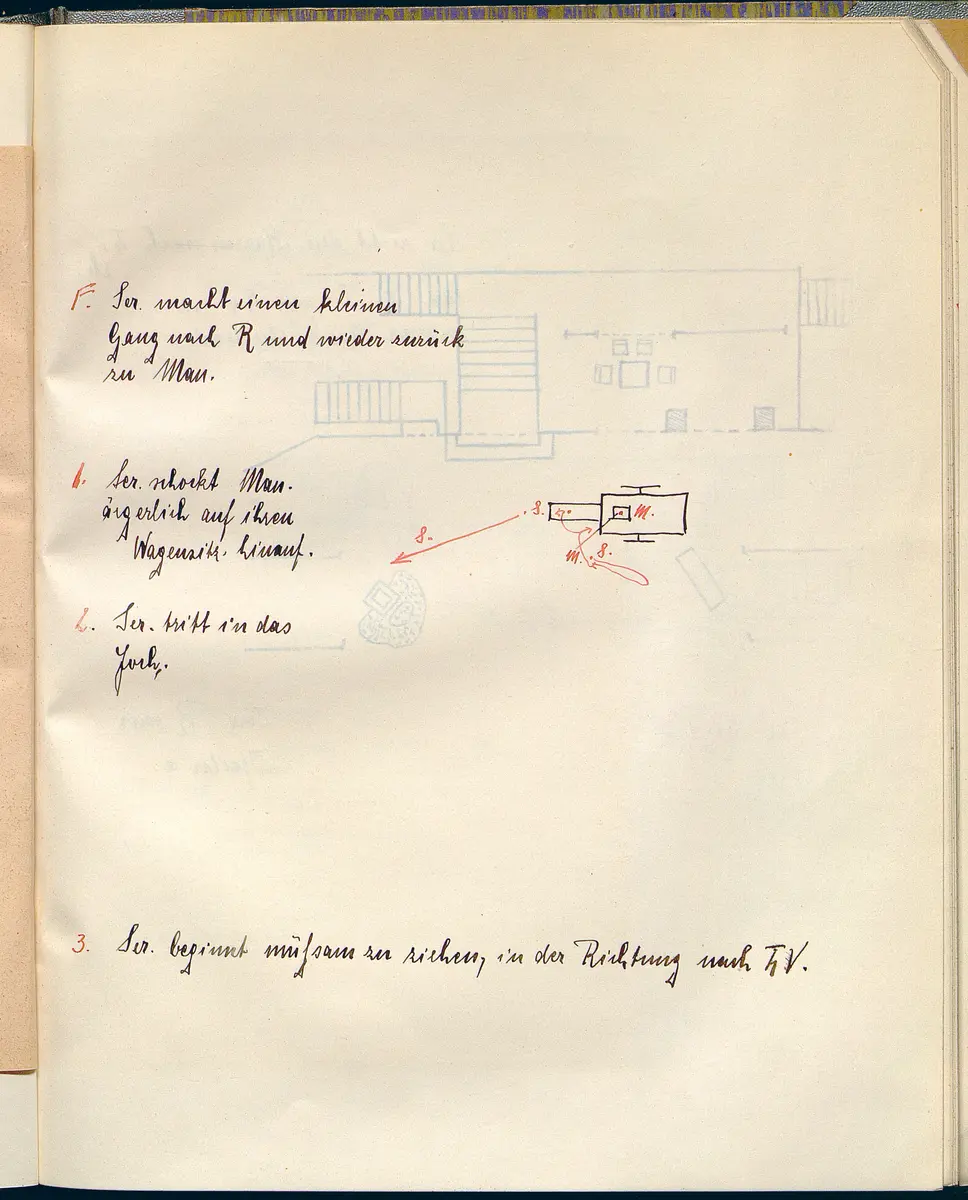 F. Ser. macht einen kleinen
Gang nach R und wieder zurück
zu Man.
1. Ser. schockt Man.
ärgerlich auf ihren
Wagensitz hinauf.
.S.
M.
S.
M. S.
2. Ser. tritt in das
Joch.
3. Ser. beginnt mühsam zu ziehen, in der Richtung nach